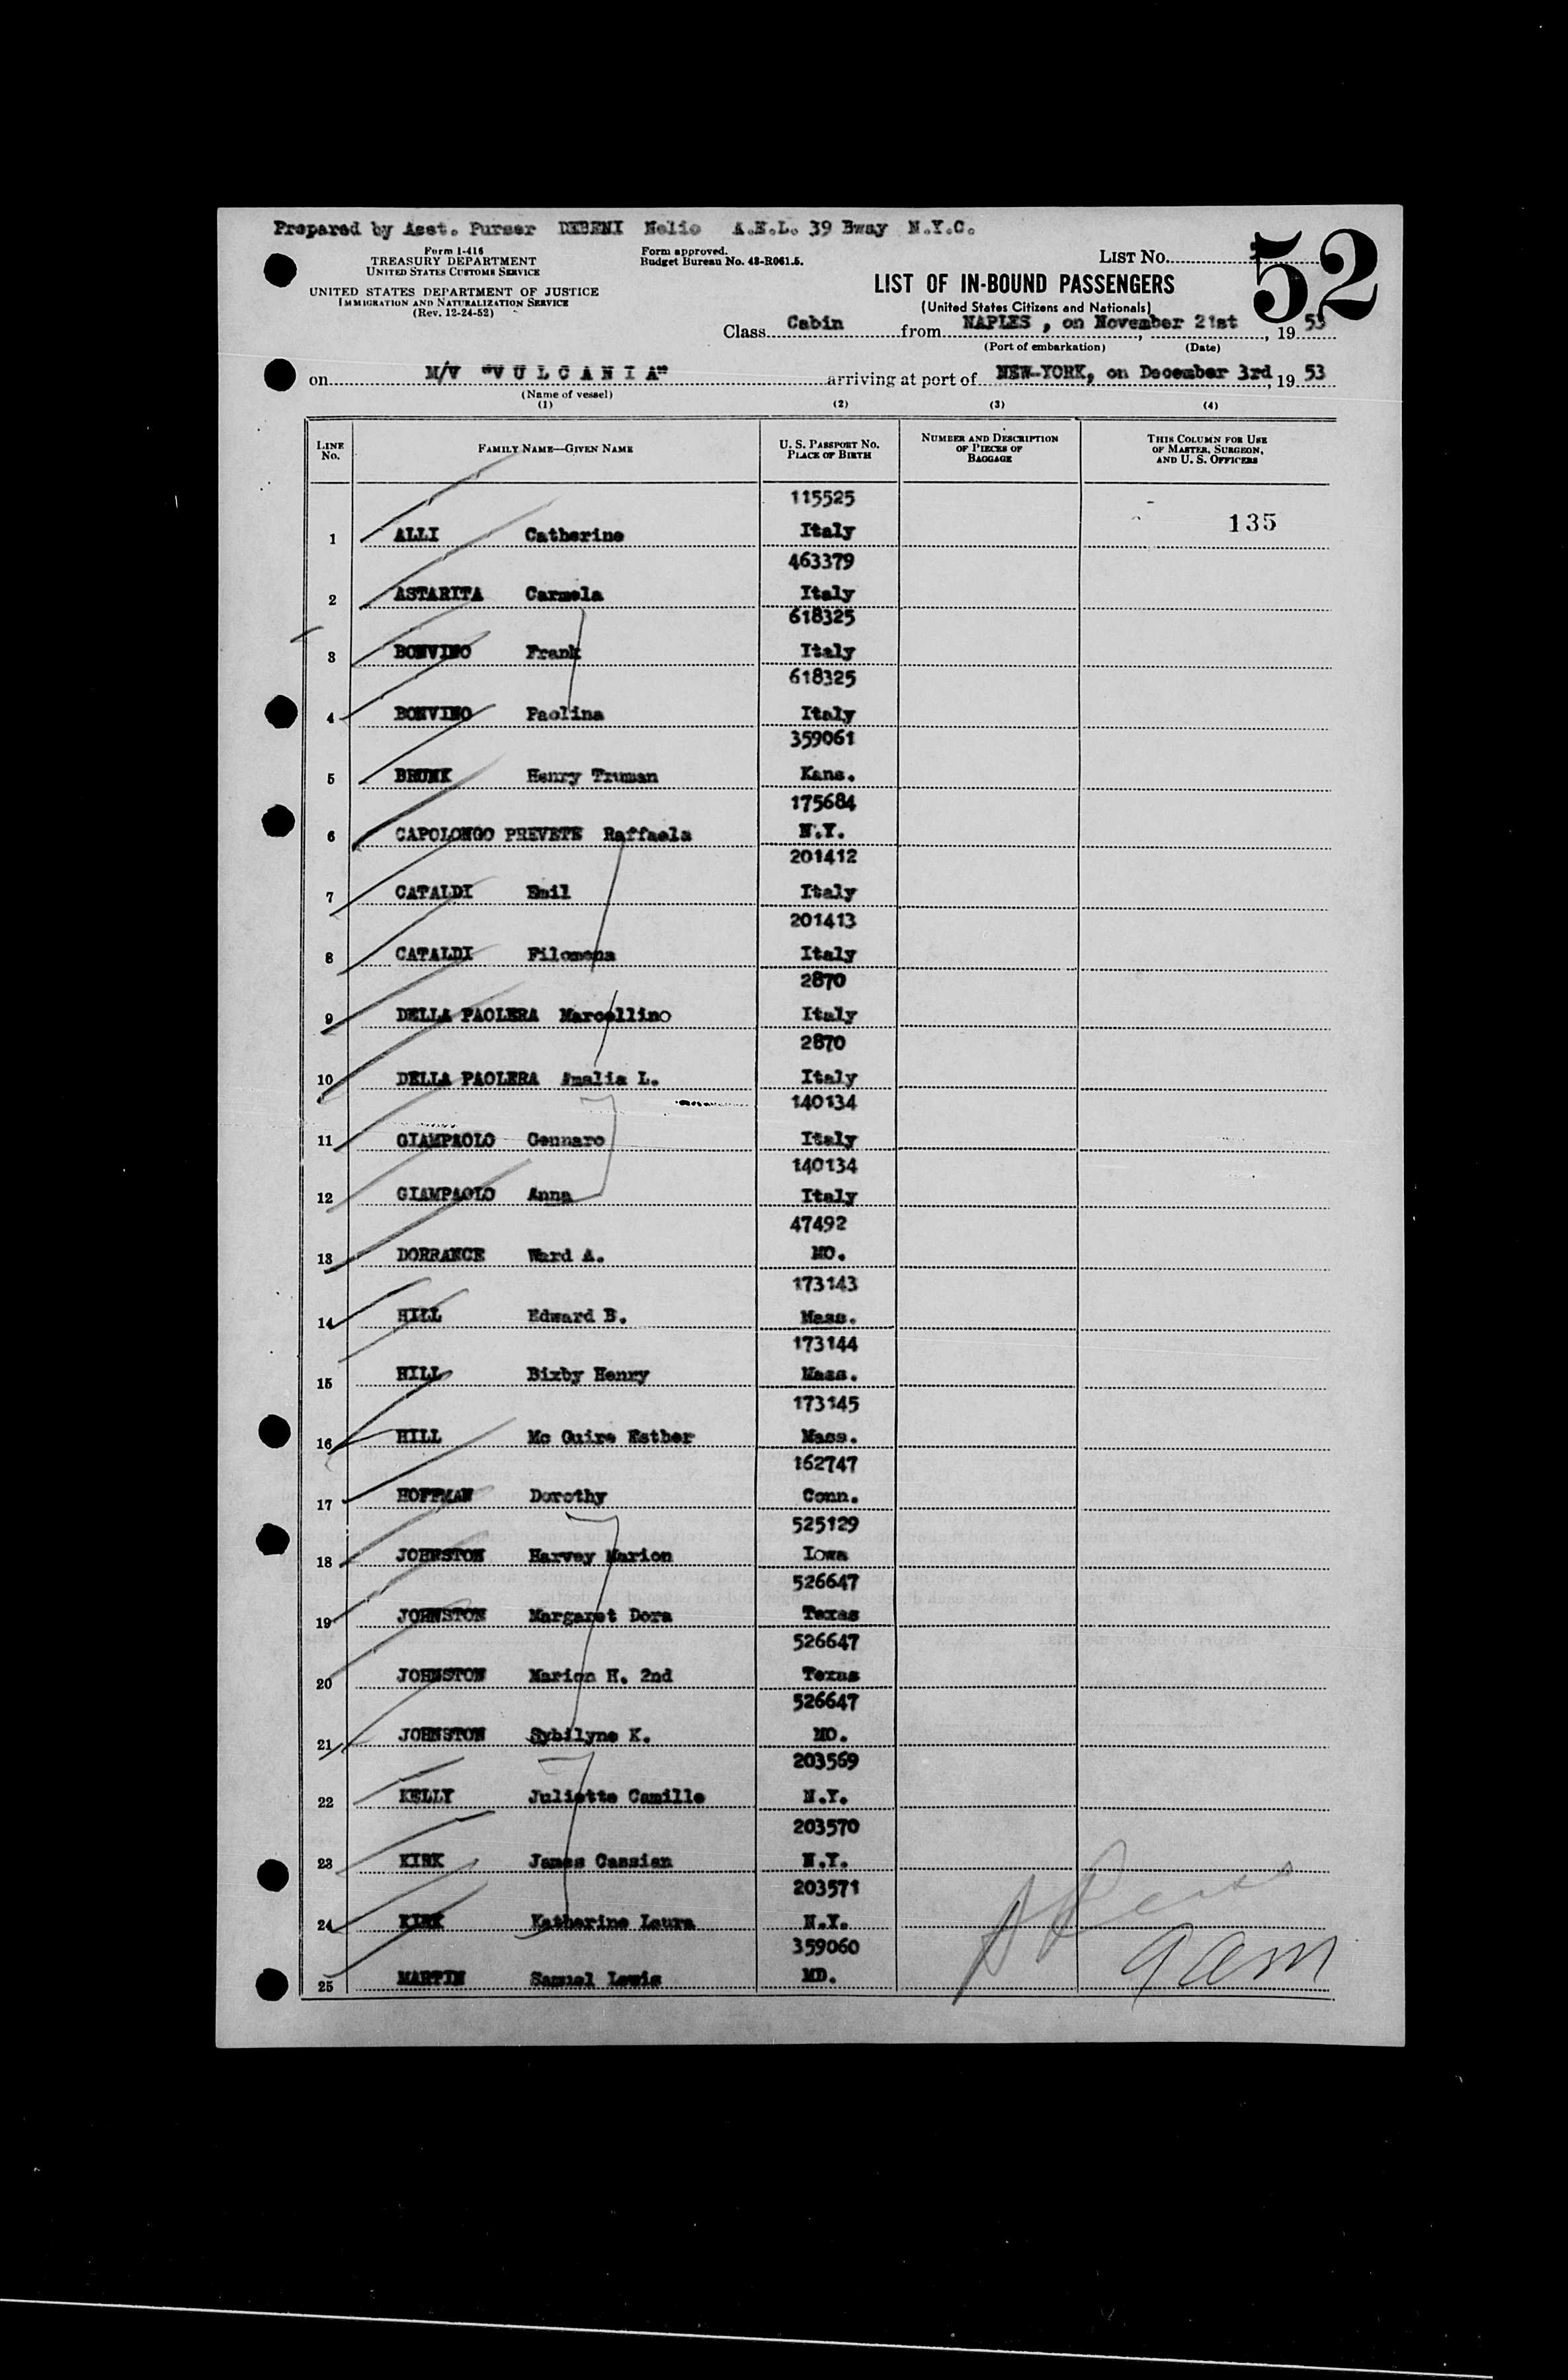 Prepared by Asst. Purser DEBENI Nelio A.E.L. 39 Bway N.Y.C.
Form I-416
TREASURY DEPARTMENT
UNITED STATES CUSTOMS SERVICE
UNITED STATES DEPARTMENT OF JUSTICE
IMMIGRATION AND NATURALIZATION SERVICE
(Rev. 12-24-52)
Form approved.
Budget Bureau No. 43-R061.5.
LIST No. 52
LIST OF IN-BOUND PASSENGERS
(United States Citizens and Nationals)
Class Cabin from NAPLES, on November 21st, 1953
(Port of embarkation) (Date)
on M/V "VULCANIA" arriving at port of NEW-YORK, on December 3rd, 1953
(Name of vessel)
(1) (2) (3) (4)
LINE No. FAMILY NAME—GIVEN NAME U. S. PASSPORT NO. PLACE OF BIRTH NUMBER AND DESCRIPTION OF PIECES OF BAGGAGE THIS COLUMN FOR USE OF MASTER, SURGEON, AND U. S. OFFICERS
115525
1 ALLI Catherine Italy 135
463379
2 ASTARITA Carmela Italy
618325
3 BONVINO Frank Italy
618325
4 BONVINO Paolina Italy
359061
5 BRUNK Henry Truman Kans.
175684
6 CAPOLONGO PREVETE Raffaela N.Y.
201412
7 CATALDI Emil Italy
201413
8 CATALDI Filomena Italy
2870
9 DELLA PAOLERA Marcellino Italy
2870
10 DELLA PAOLERA Amalia L. Italy
140134
11 GIAMPAOLO Gennaro Italy
140134
12 GIAMPAOLO Anna Italy
47492
13 DORRANCE Ward A. MO.
173143
14 HILL Edward B. Mass.
173144
15 HILL Bixby Henry Mass.
173145
16 HILL Mc Guire Esther Mass.
162747
17 HOFFMAN Dorothy Conn.
525129
18 JOHNSTON Harvey Marion Iowa
526647
19 JOHNSTON Margaret Dora Texas
526647
20 JOHNSTON Marion H. 2nd Texas
526647
21 JOHNSTON Sybilyne K. MO.
203569
22 KELLY Juliette Camille N.Y.
203570
23 KIRK James Cassian N.Y.
203571
24 KIRK Katherine Laura N.Y.
359060
25 MARTIN Samuel Lewis MD.